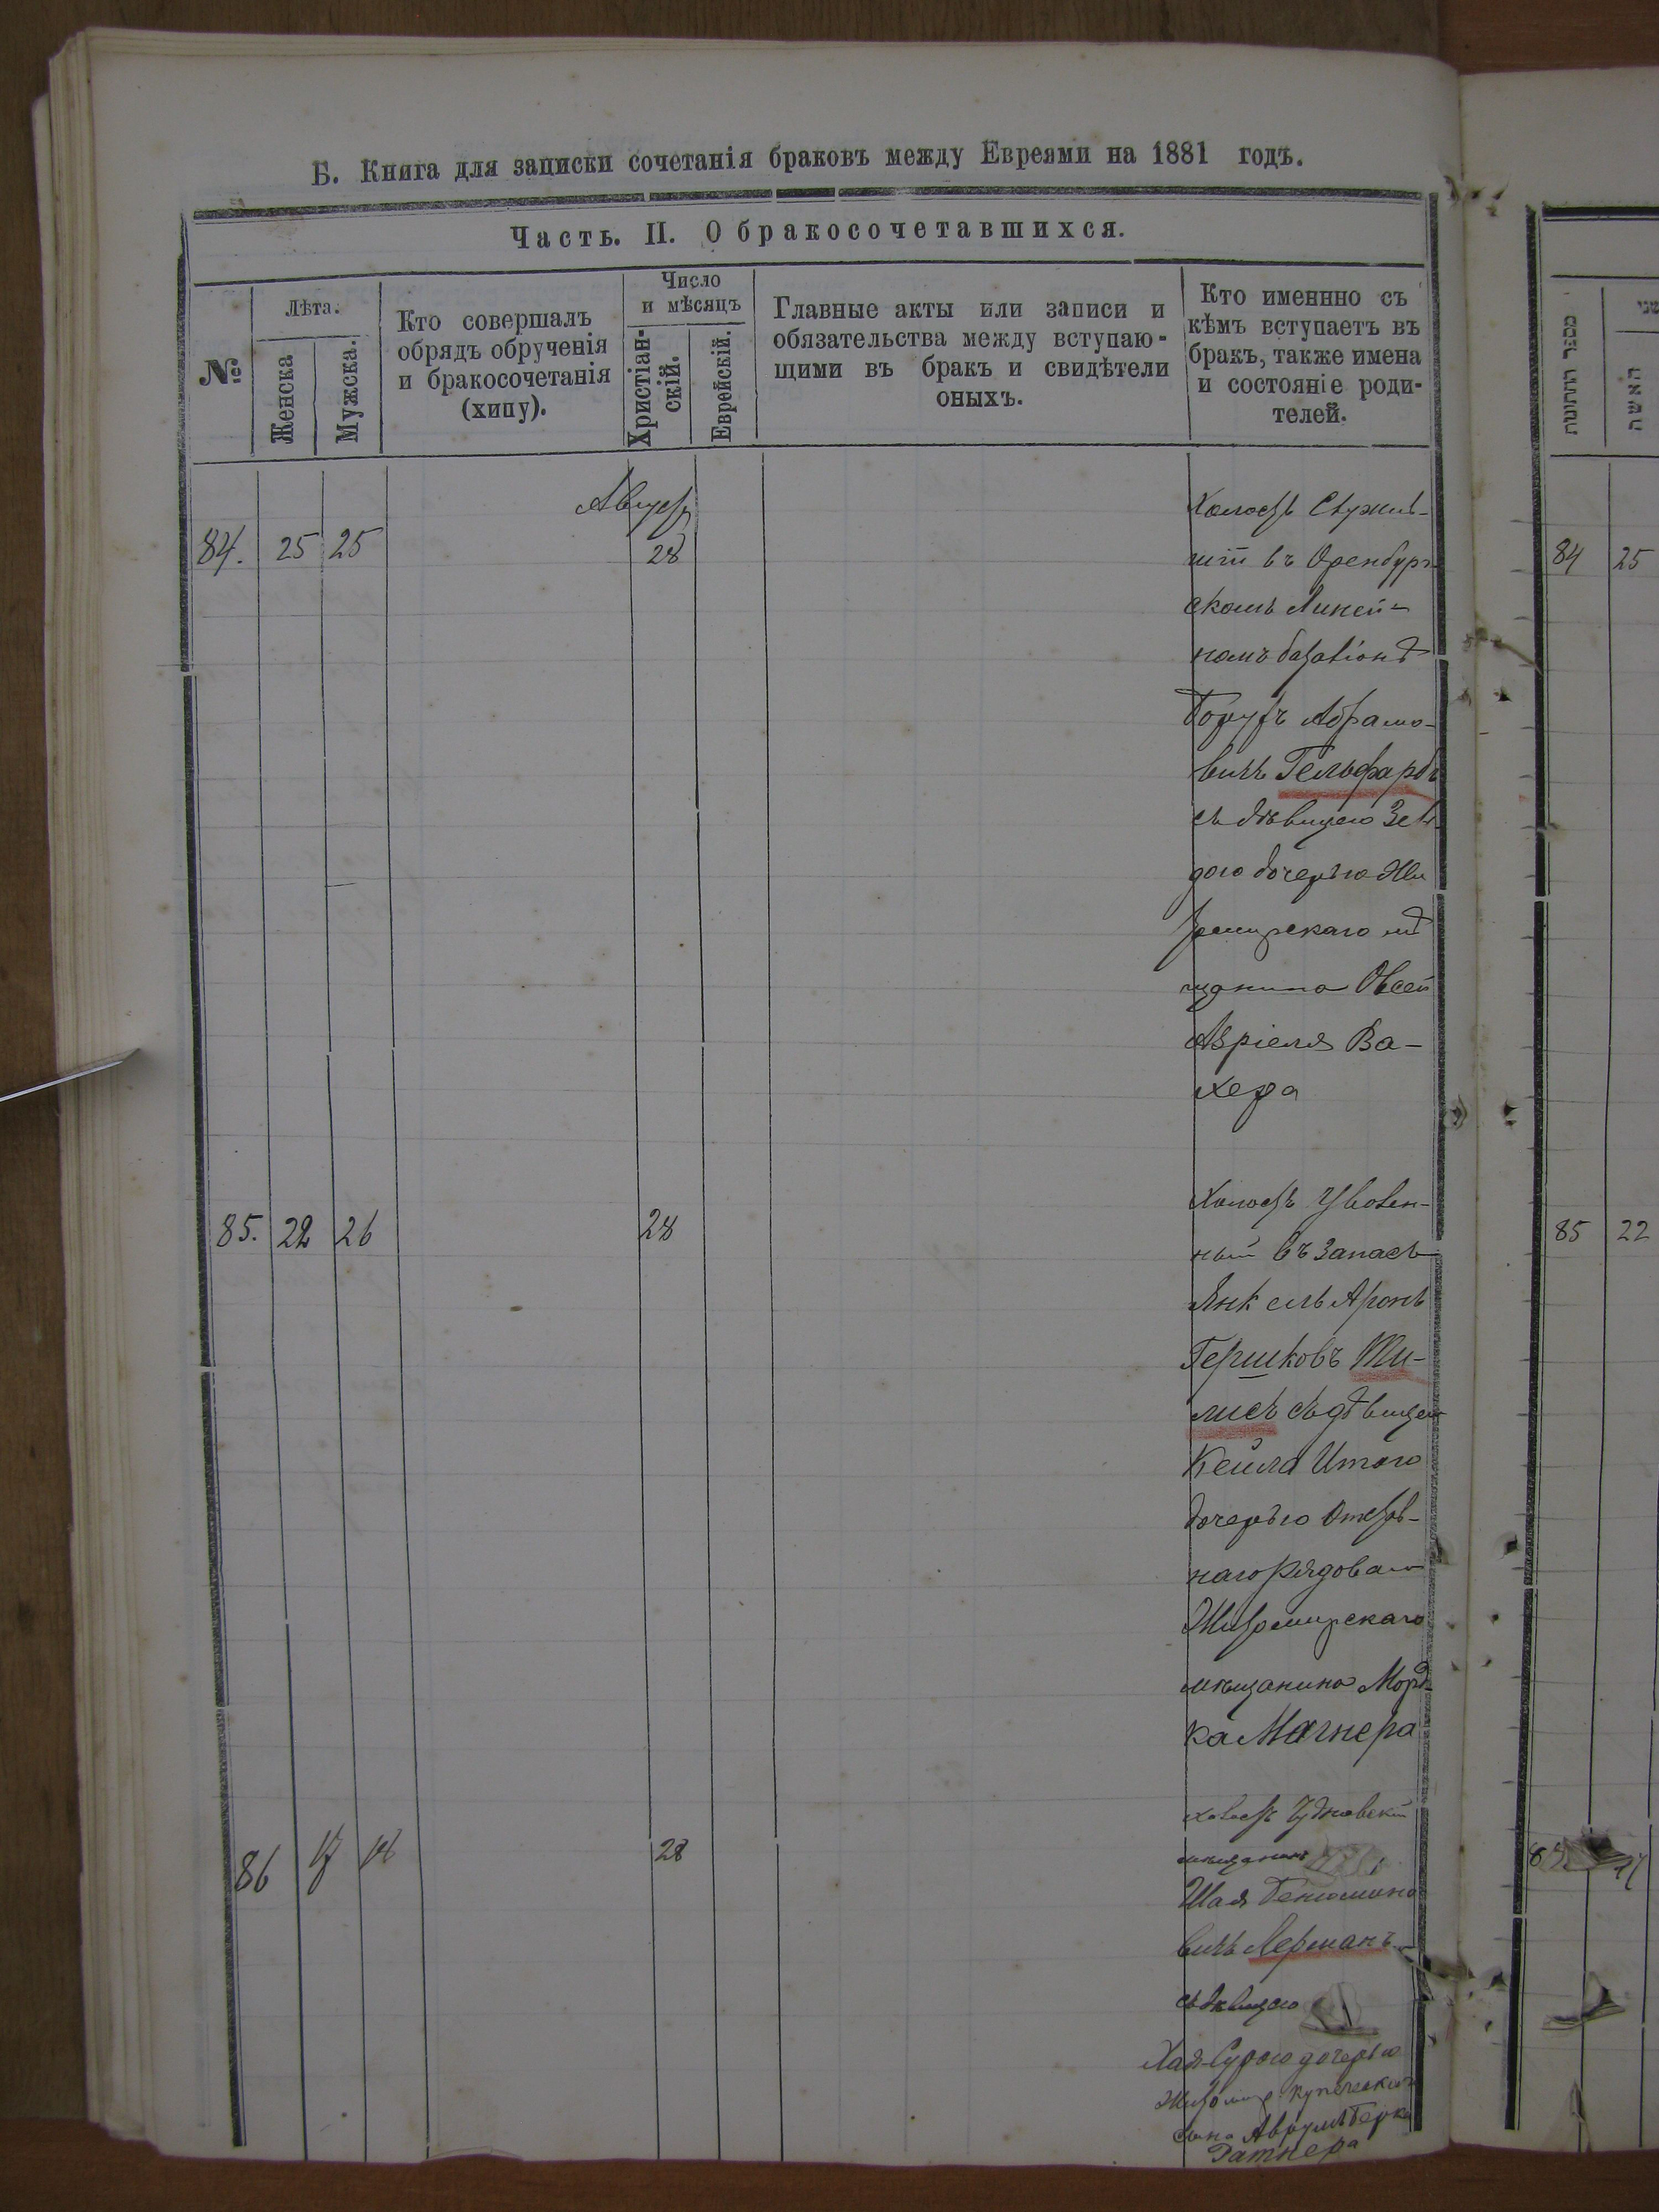 Б. Книга для записки сочетанія браковъ между Евреями на 1881 годъ.
Часть. II. О бракосочетавшихся.
№
Лѣта.
Женска
Мужска.
Кто совершалъ
обрядъ обрученія
и бракосочетанія
(хипу).
Число
и мѣсяцъ
Христіан-
скій.
Еврейскій.
Главные акты или записи и
обязательства между вступаю-
щими въ бракъ и свидѣтели
оныхъ.
Кто именнно съ
кѣмъ вступаетъ въ
бракъ, также имена
и состояніе роди-
телей.
Августъ
84. 25 25 28
Холостъ Служив-
шій въ Оренбург-
скомъ Линей-
номъ баталіонѣ
Борухъ Абрамо-
вичъ Гельфарбъ
съ дѣвицею Зел-
дою дочерью Жи
томирскаго мѣ
щанина Овсей
Азріеля Ва-
хера
85. 22 26 28
Холостъ Уволен-
ный въ Запасъ
Янкель Аронъ
Гершковъ Ти-
лисъ съ дѣвицею
Кейла Итою
дочерью Отстав-
наго Рядоваго
Житомирскаго
мѣщанина Морд-
ка Магнера
86 28
холостъ Чудновскій
мѣщанинъ
Шая Бенюмино
вичъ Лерманъ
съ дѣвицею
Хая-Сурою дочерью
Житомир. купеческаго
сына Аврумъ Берка
Ратнера
מספר החתונות
האשה
84 25
85 22